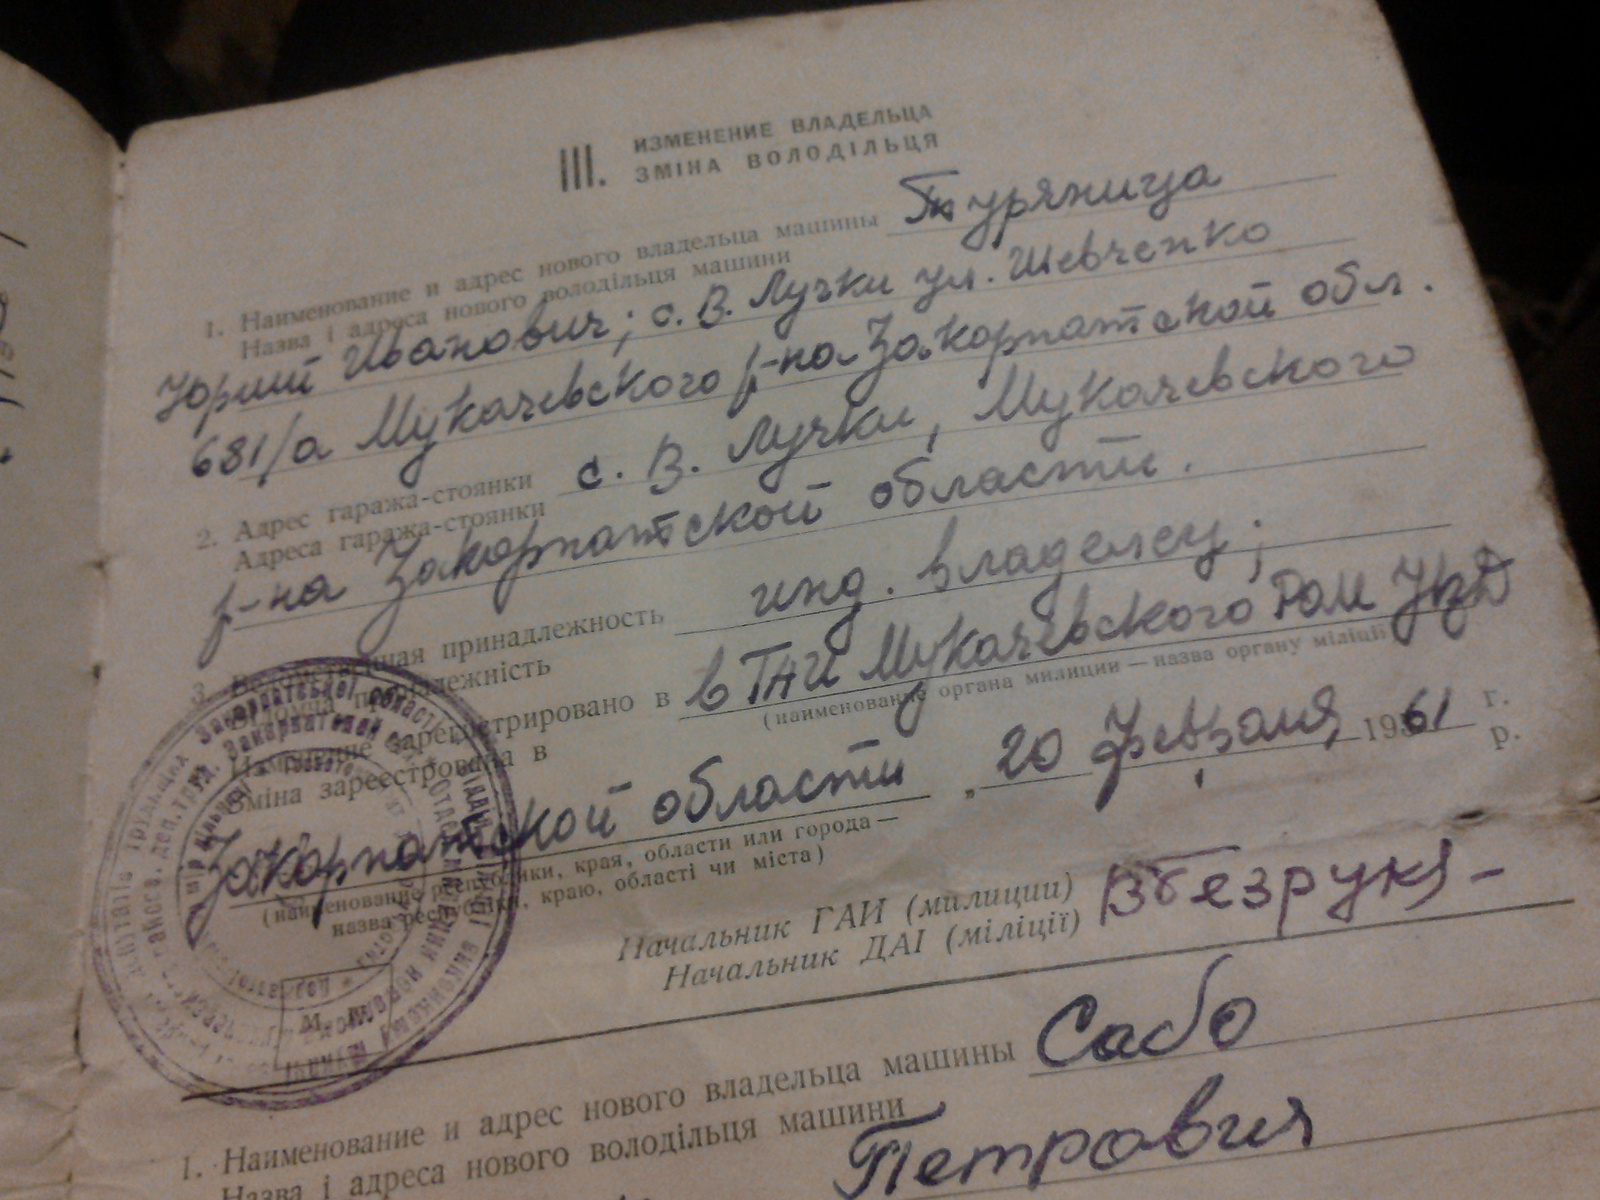 III. ИЗМЕНЕНИЕ ВЛАДЕЛЬЦА
ЗМІНА ВОЛОДІЛЬЦЯ
1. Наименование и адрес нового владельца машины Туряница
Назва і адреса нового володільця машини
Юрий Иванович; с. В. Лучки ул. Шевченко
681/а Мукачевского р-на Закарпатской обл.
2. Адрес гаража-стоянки с. В. Лучки, Мукачевского
Адреса гаража-стоянки
р-на Закорпатской области.
3. принадлежность инд. владелец;
Изменение зарегистрировано в в ГАИ Мукачевского РОМ УВД
Зміна зареєстрована в
(наименование органа милиции — назва органу міліції)
Закорпатской области „ 20 Февраля 1961 г.
р.
(наименование республики, края, области или города —
назва республіки, краю, області чи міста)
Начальник ГАИ (милиции)
Начальник ДАІ (міліції)
М.
1. Наименование и адрес нового владельца машины Сабо
Назва і адреса нового володільця машини
Петрович